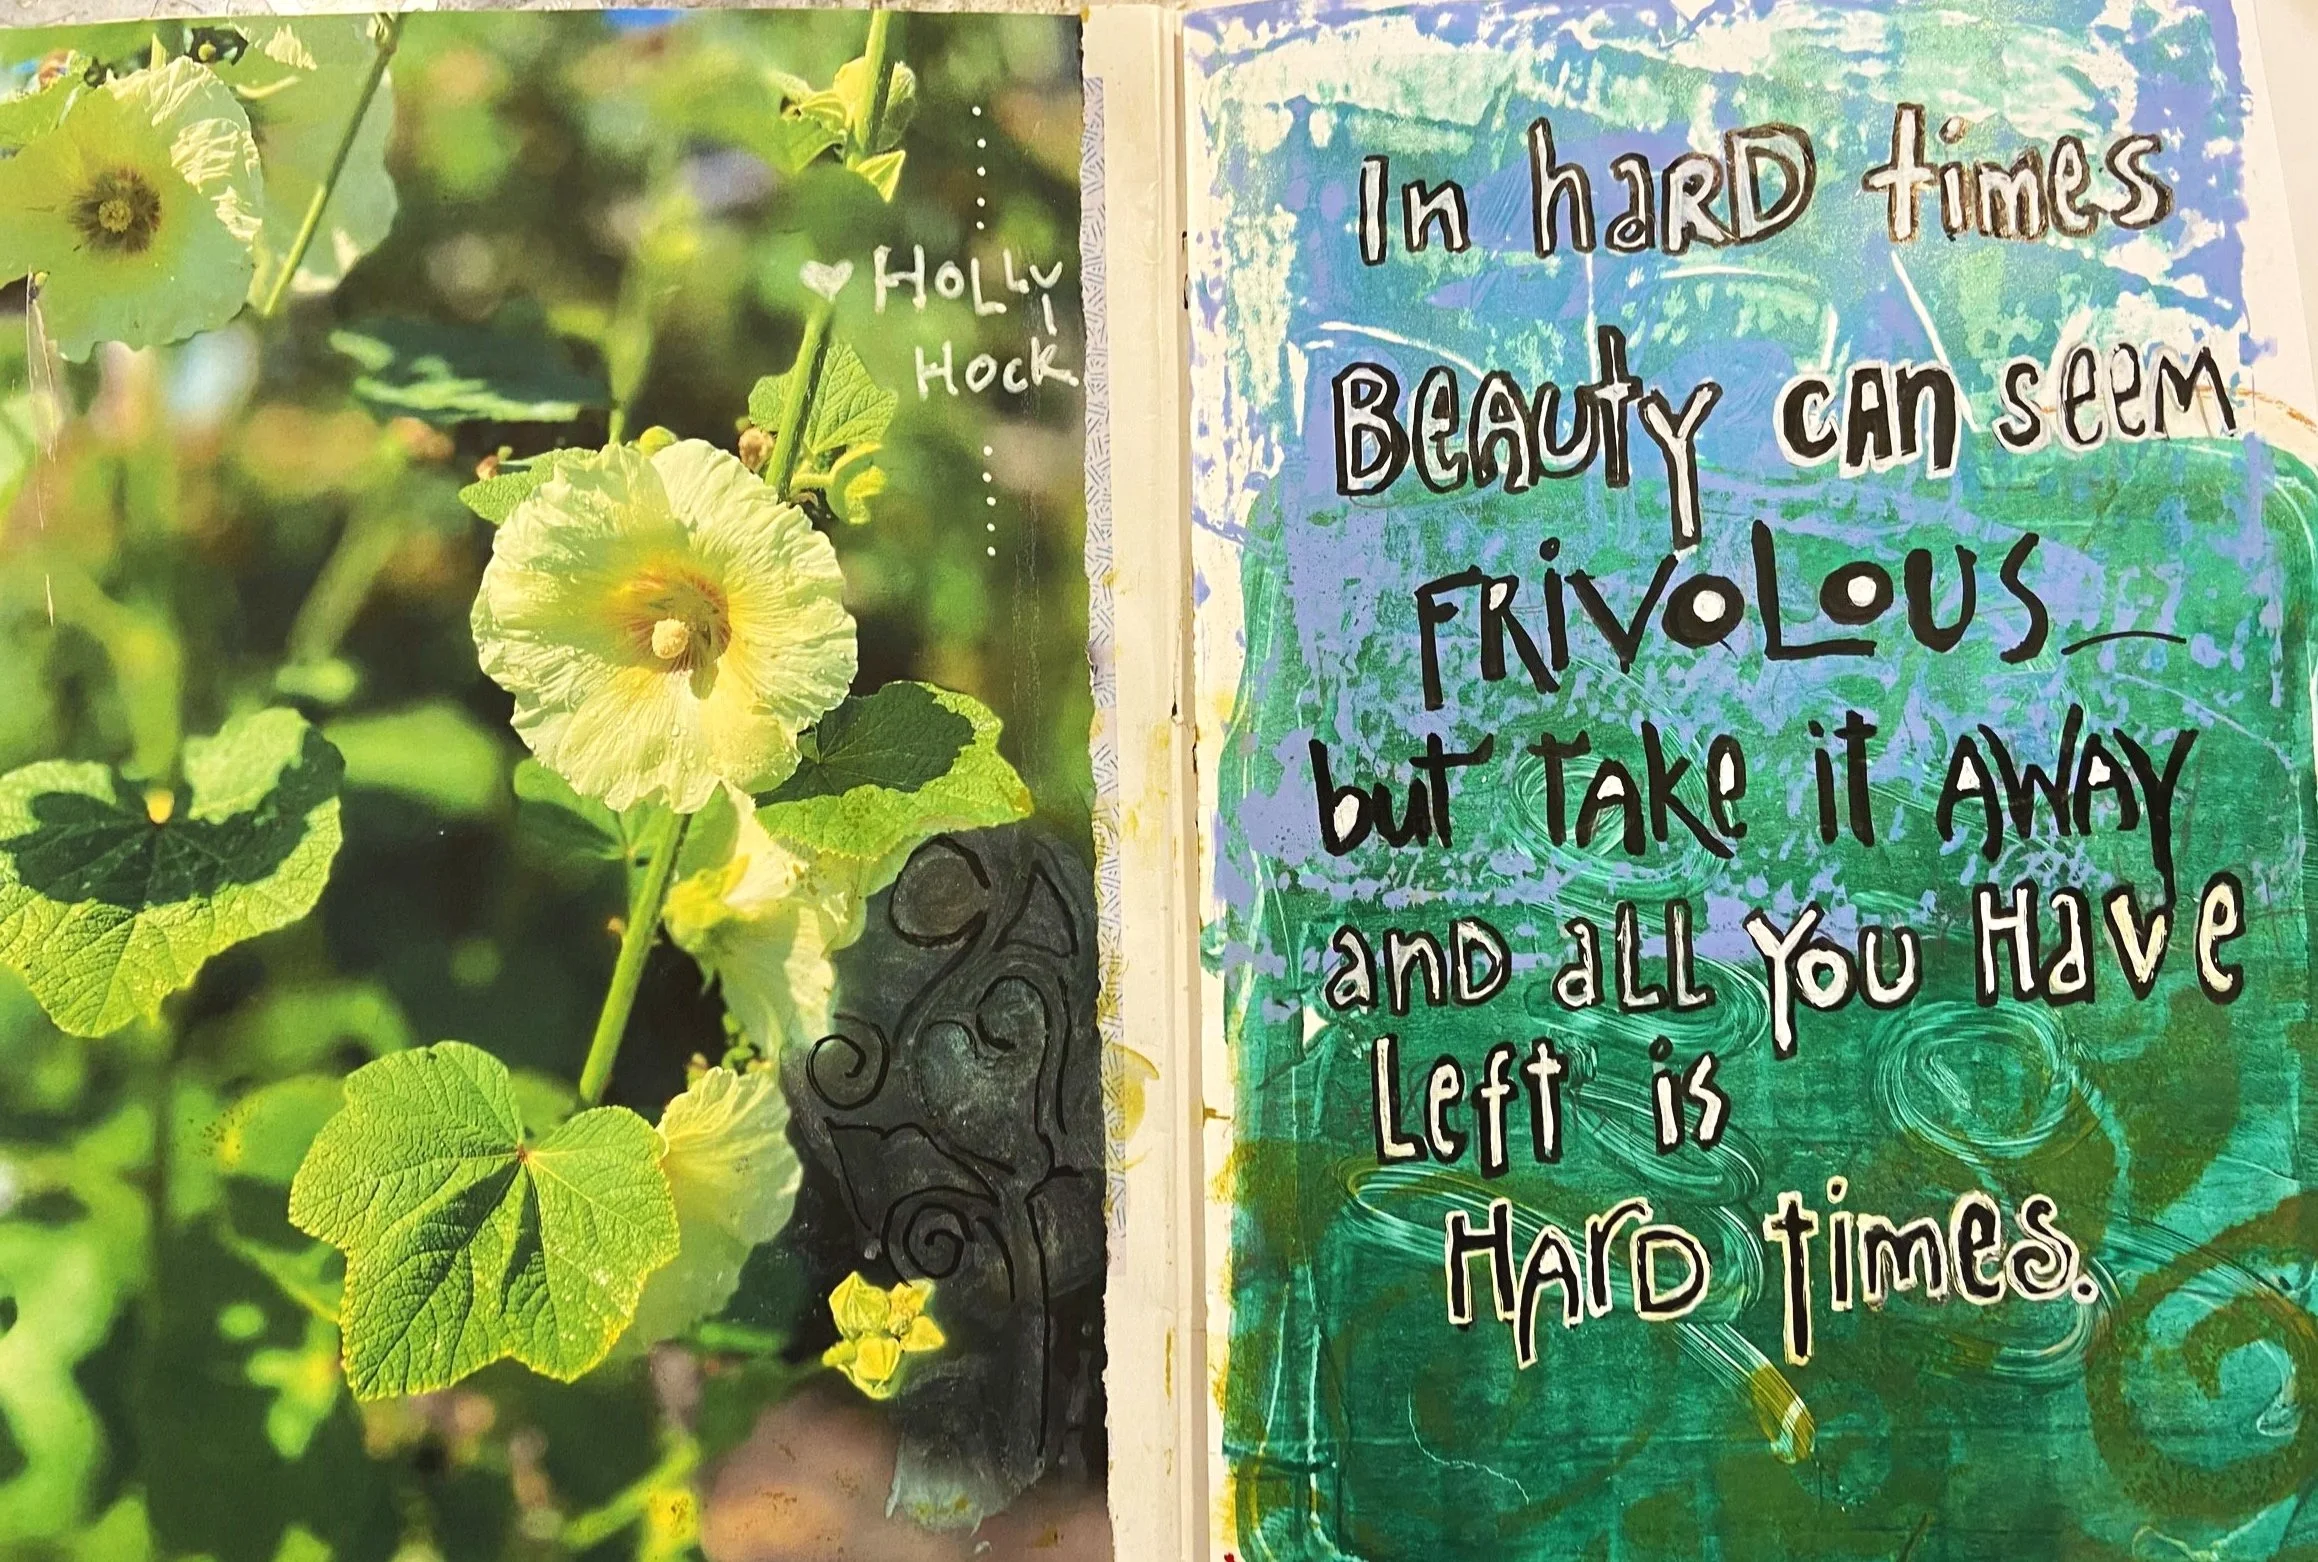 HOLLY
HOCK
In hARD times
BeAuty cAn seem
FRiVOLOUS
but TAke it AWAY
and aLL You Have
Left is
HArD times.